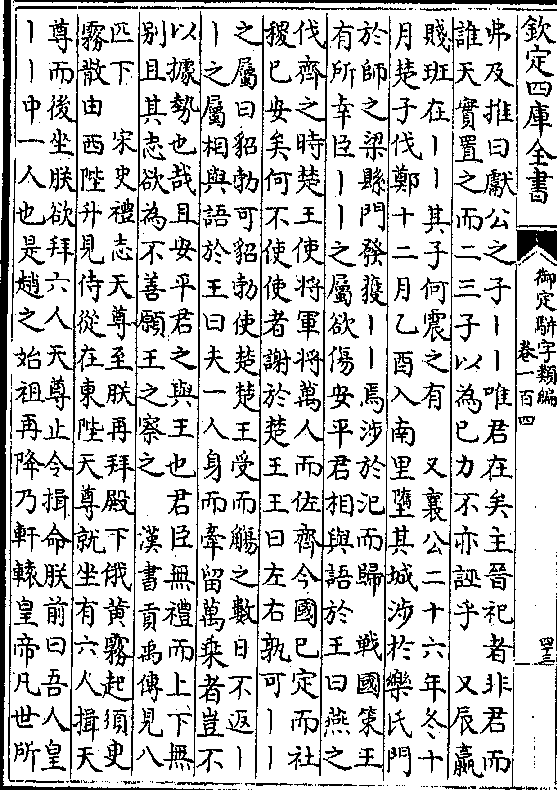 欽定四庫全書
御定駢字類編
卷一百四
四三
弗及推曰獻公之子丨丨唯君在矣主晉祀者非君而
誰天實置之而二三子以為已力不亦誣乎　又辰嬴
賤班在丨丨其子何震之有　又襄公二十六年冬十
月楚子伐鄭十二月乙酉入南里墮其城涉於樂氏門
於師之梁縣門發獲丨丨焉涉於氾而歸　戰國策王
有所幸臣丨丨之屬欲傷安平君相與語於王曰燕之
伐齊之時楚王使將軍將萬人而佐齊今國已定而社
稷已安矣何不使使者謝於楚王王曰左右孰可丨丨
之屬曰貂勃可貂勃使楚楚王受而觴之數日不返丨
丨之屬相與語於王曰夫一人身而牽留萬乘者豈不
以據勢也哉且安平君之與王也君臣無禮而上下無
別且其志欲為不善願王之察之　漢書貢禹傳見八
匹下　宋史禮志天尊至朕再拜殿下俄黃霧起須臾
霧散由西陛升見侍從在東陛天尊就坐有六人揖天
尊而後坐朕欲拜六人天尊止令揖命朕前曰吾人皇
丨丨中一人也是趙之始祖再降乃軒轅皇帝凡世所